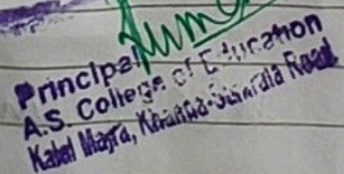 Principal
A.S. College of Education
Kalal Majra, Khanna-Samrala Road